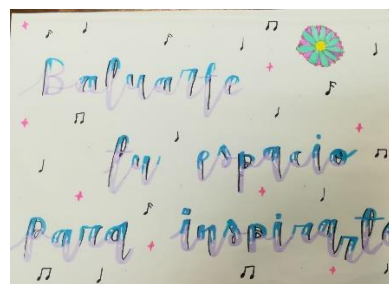 Baluarte
tu espacio
para inspirarte